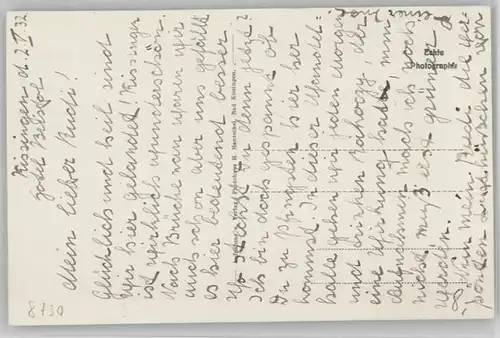 Kissingen d. 2.V.32
Hotel Bristol
Mein lieber Rudi!
Glücklich und heil sind
wir hier gelandet. Kissingen
ist wirklich wunderschön.
Nach Brückenau waren wir
auch schon aber uns gefällt
es hier bedeutend besser.
Wo steckst Du denn jetzt?
Ich bin doch gespannt ob
Du zu Pfingsten hier her
kommst. In dieser Wandel-
halle gehen wir jeden morgen
und trinken Rakoczy, der
eine Wirkung hat,
mach ich auch
nicht, muß erst
werden.
mein Rudi die
von
Verlag Hofphotogr. Bad Kissingen.
Echte
Photographie
8730